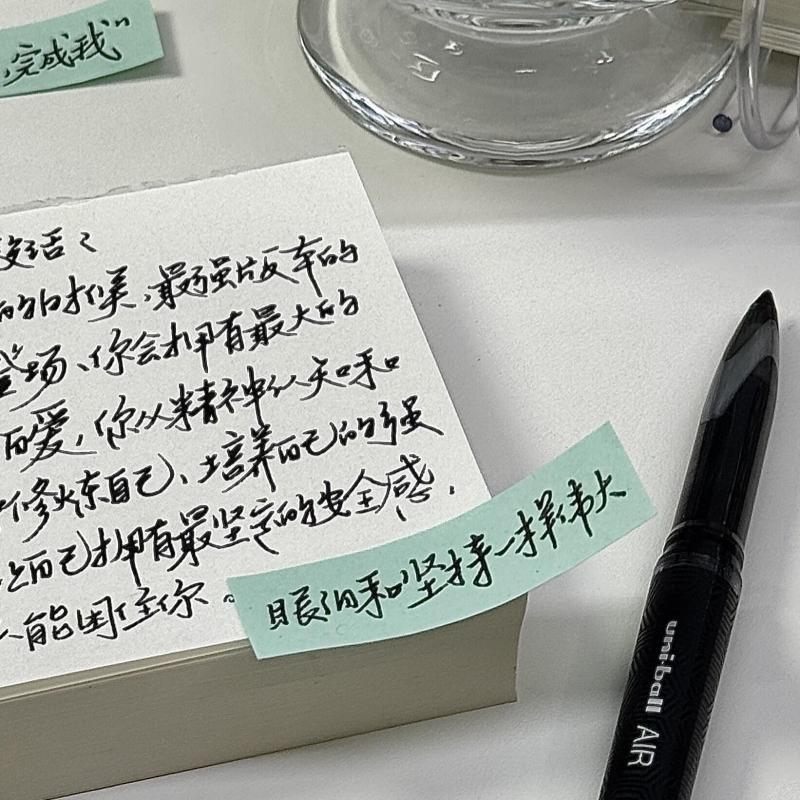 完成我”
段话：
的时候，最强版本的
登场、你会拥有最大的
的爱，你从精神从知和
修炼自己、培养自己的强
让自己拥有最坚定的安全感，
能困住你。
眼泪和坚持一样伟大
uni-ball AIR